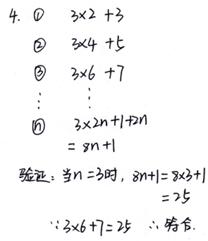 4. ① 3×2 +3
② 3×4 +5
③ 3×6 +7
⋮ ⋮
ⓝ 3×2n+1+2n
= 8n+1
验证: 当n=3时, 8n+1=8×3+1
=25
∵3×6+7=25 ∴符合.